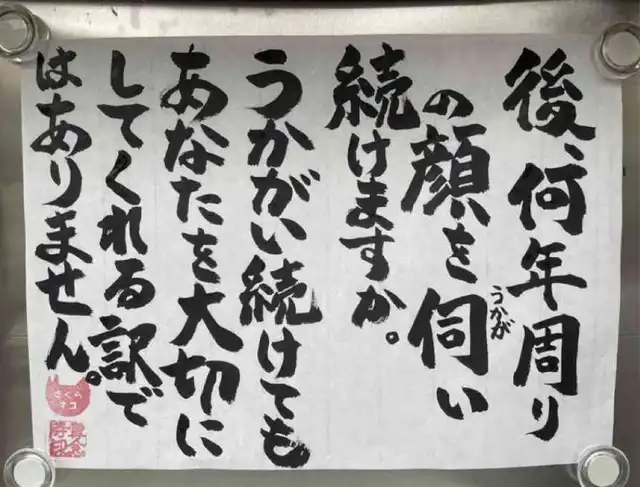 後、何年周り
の顔を伺い
うかが
続けますか。
うかがい続けても
あなたを大切に
してくれる訳で
はありません。
さくら
ネコ